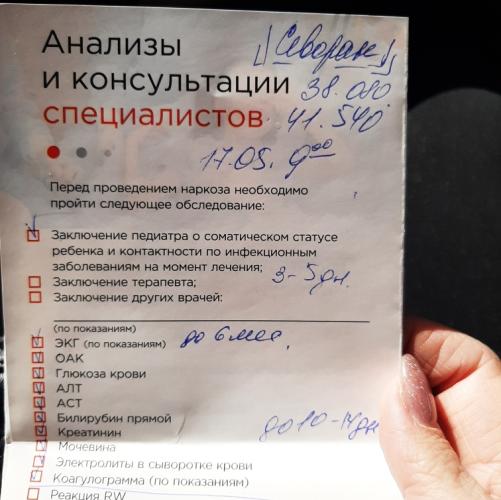 Анализы
и консультации
специалистов
Севоран
38.080
41.540
17.05. 9⁰⁰
Перед проведением наркоза необходимо
пройти следующее обследование:
Заключение педиатра о соматическом статусе
ребенка и контактности по инфекционным
заболеваниям на момент лечения; 3-5 дн.
Заключение терапевта;
Заключение других врачей:
(по показаниям)
ЭКГ (по показаниям) до 6 мес.
ОАК
Глюкоза крови
АЛТ
АСТ
Билирубин прямой
Креатинин до 10-14 дн
Мочевина
Электролиты в сыворотке крови
Коагулограмма (по показаниям)
Реакция RW